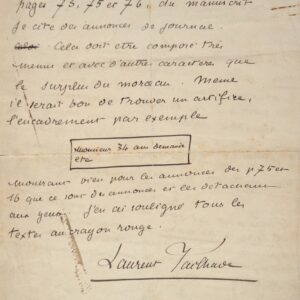 pages 75, 75 et 76, du manuscrit
Je cite des annonces de journaux.
Cela doit être composé très
menu et avec d'autres caractères que
le surplus du morceau. Même
il serait bon de trouver un artifice,
l'encadrement par exemple
Monsieur 34 ans demande
etc
montrant bien pour les annonces des p 75 et
76 que ce sont des annonces et les détachent
aux yeux. J'en ai souligné tous les
textes au crayon rouge.
Laurent Tailhade